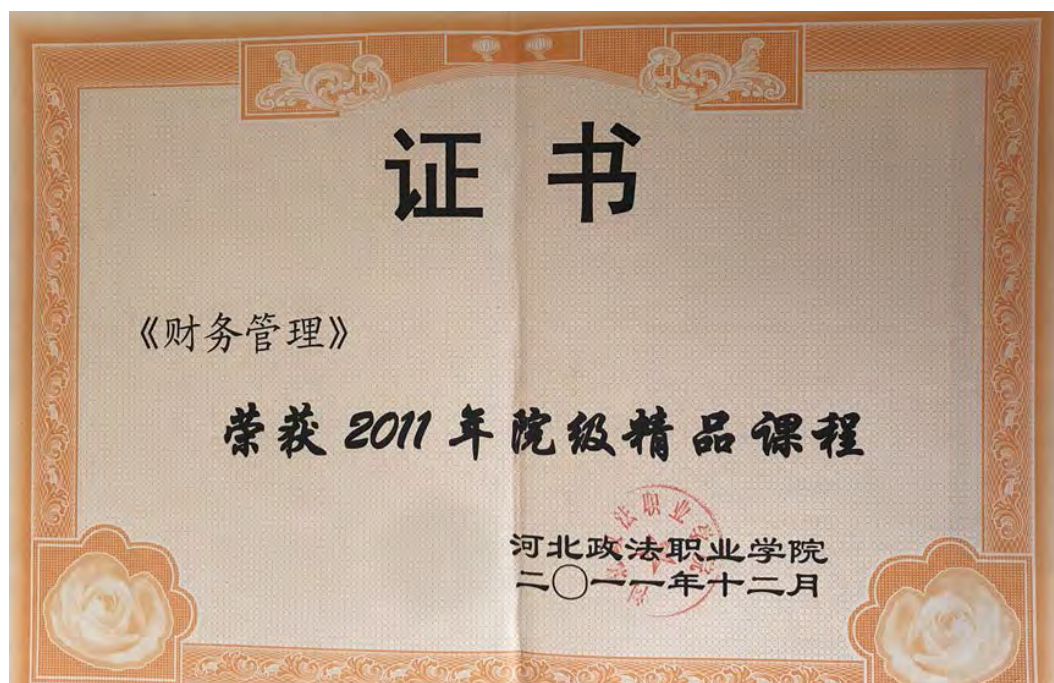 证书
《财务管理》
荣获2011年院级精品课程
河北政法职业学院
二〇一一年十二月
河北政法职业学院